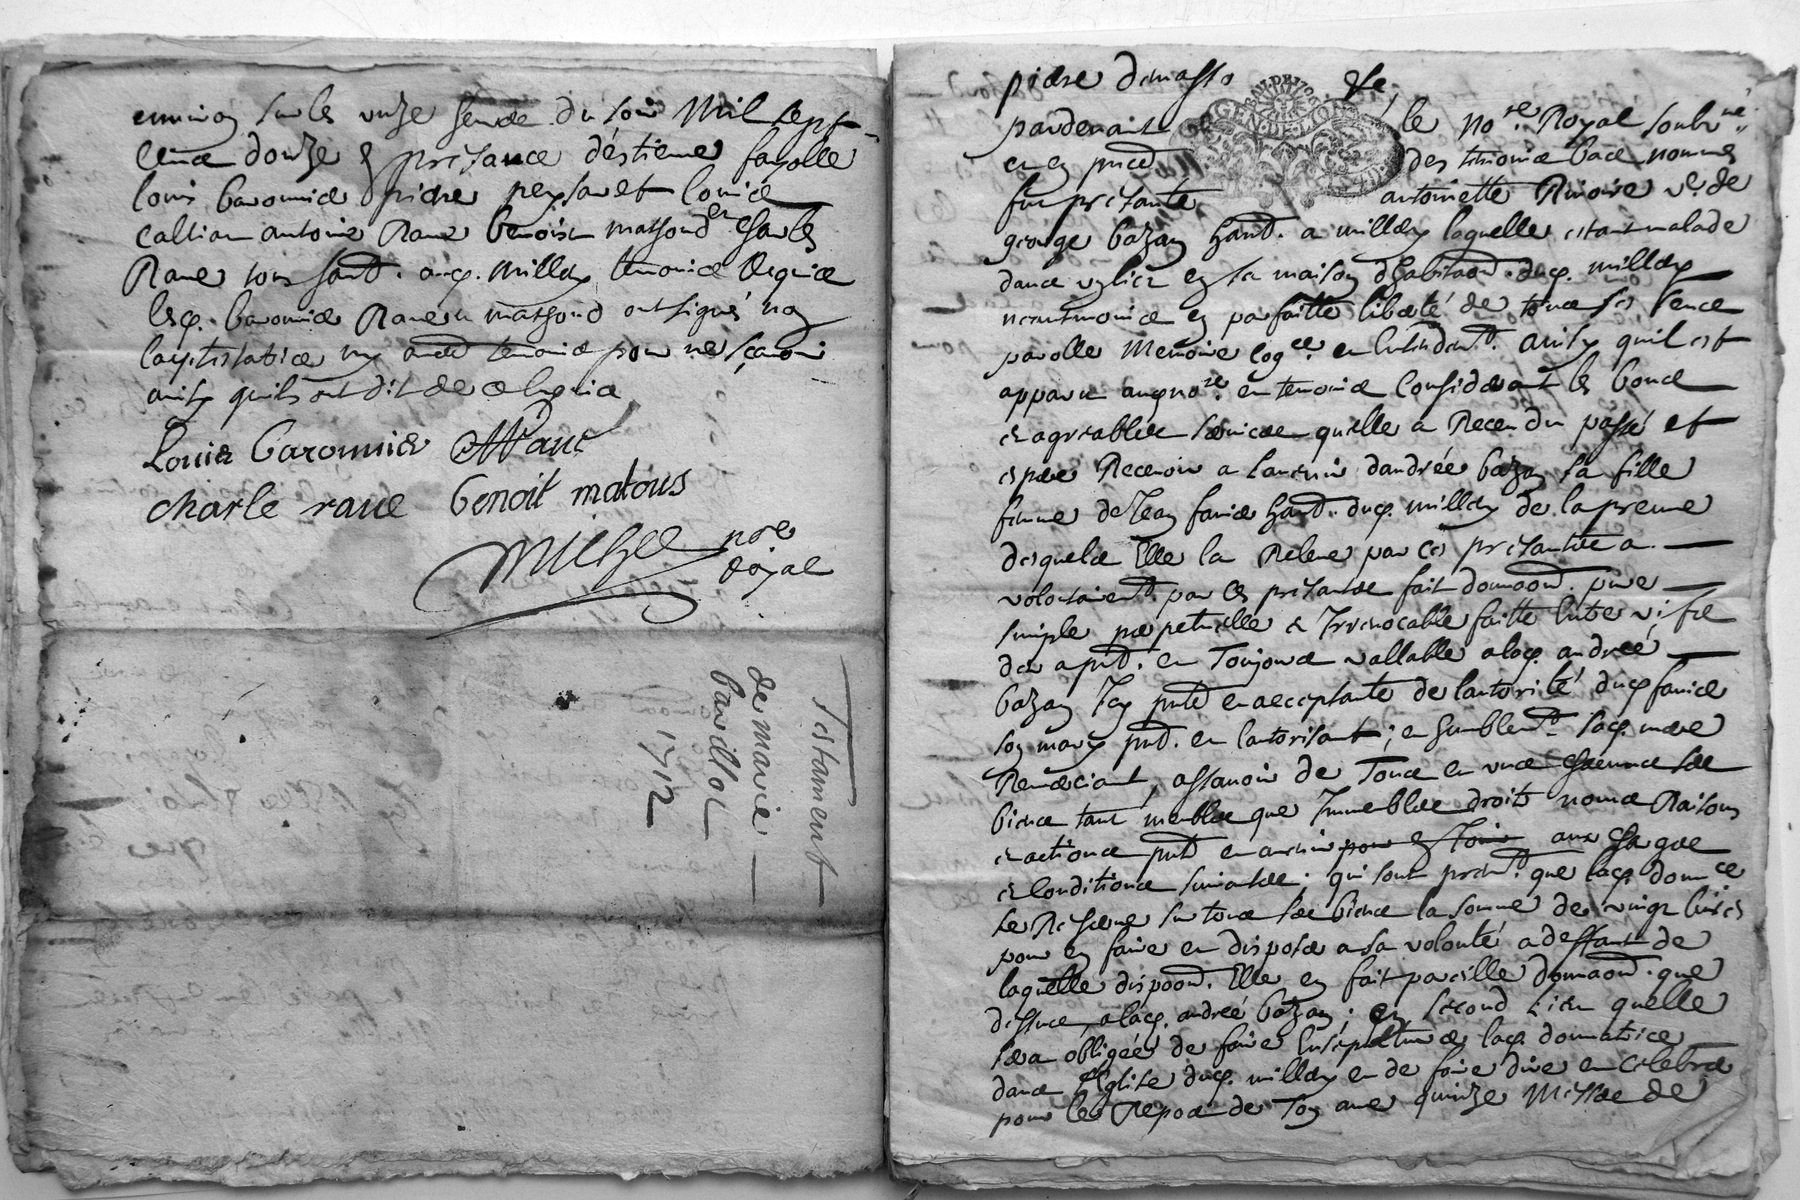 environ sur les unze heure du soir Mil sept
cens douze & présance d'éstiene fayolle
louis baronnier piere peysaret louis
callian antoine Rave benoist mathoud et charles
Rave tous habt. audt. millery temoins lesquels
lesd. baronnier Rave et mathoud ont signé non
lad. testatrice ny autres temoins pour ne sçavoir
ainsy quils ont dit de ce enquis
Louis Baronnier ARave
charle rave Benoit matous
Michel nore
Royal
Testament
de marie
barillot
1712
piere demasso
GEN. DE LION
pardevant le nore. Royal soubne.
et en presce des tesmoins bas nommés
fut presante antoinette Rivoire ve. de
george bazan habt. a millery laquelle estant malade
dans un lict en sa maison d'habitaon. dud. millery
neantmoins en parfaitte liberté de tous ses sence
parolle memoire cogce. et entendemt. ainsy quil est
apparu aud nore. et temoins considerant les bons
et agreables services quelle a Receu du passé et
espere Recevoir a l'avenir d'andrée bazan sa fille
femme de Jean favier habt. dud. millery de la preuve
desquels Elle la Releve par ces presantes a
volontairemt. par ces presantes fait donnaon. pure
simple perpetuelle et Irrevocable faitte entre vifs
des a pnt. et Toujours vallable a lad. andrée
bazan Icy pnte et acceptante de l'autorité dud favier
son mary pnt. et l'autorisant, et humblemt. sad. mere
Remerciant, assavoir de Tous et uns chacuns ses
biens tant meubles que Immeubles droits noms Raisons
et actions pnts et avenir aux charges
et conditions suivantes, qui sont premt. que lad. donnce
se Reserve sur tous ses biens la somme de vingt livres
pour en faire et disposer a sa volonté a deffaut de
laquelle disposon. Elle en fait pareille donnaon. que
dessus, a lad. andrée bazan, en second lieu quelle
sera obligée de faire ensepulturer lad. donnatrice
dans l'Eglise dud. millery et de faire dire et celebrer
pour le Repos de son ame quinze Messes de